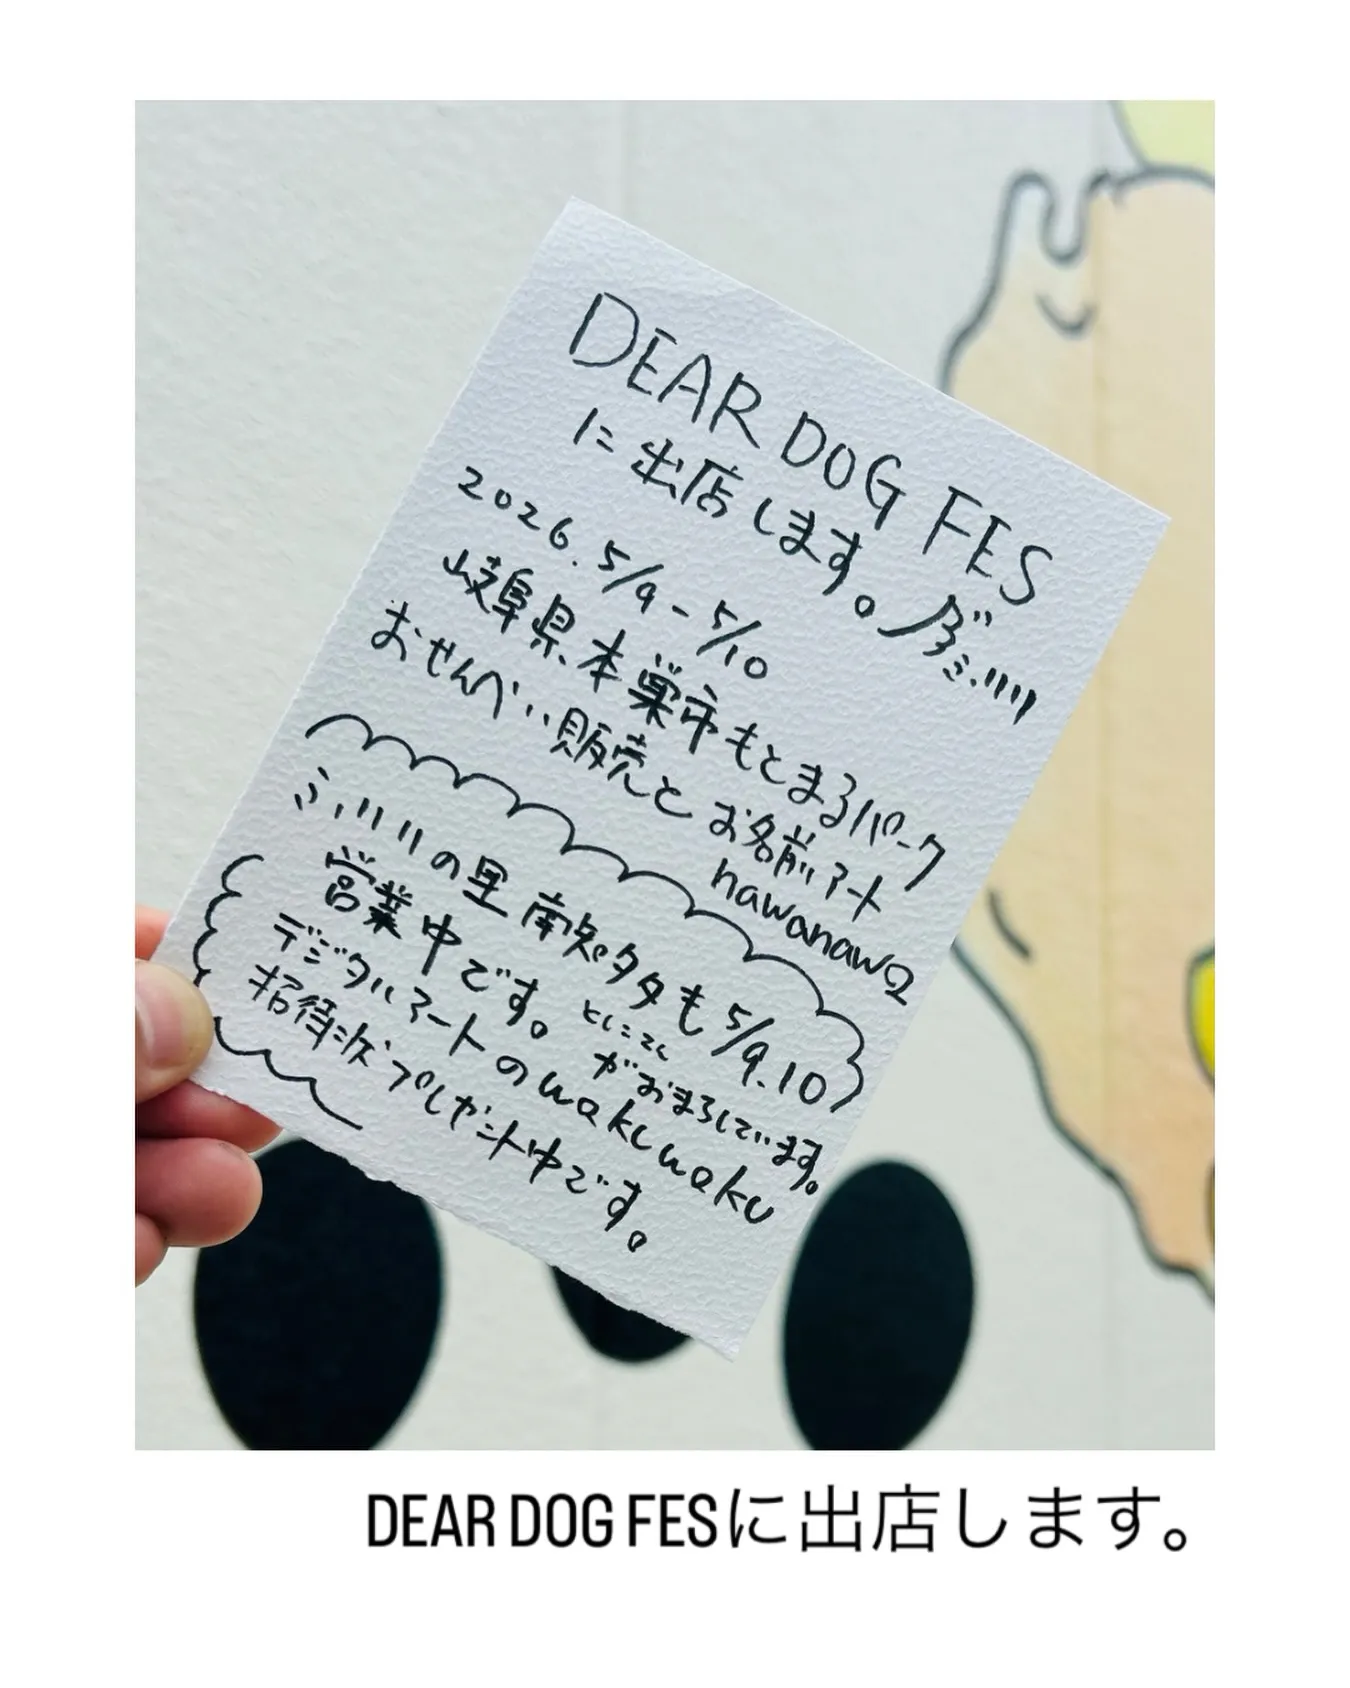 DEAR DOG FES
に出店します。
2026.5/9-5/10
岐阜県本巣市もとまるパーク
おせんべい販売とお名前アート
nawanawa
の里 南知多も5/9.10
営業中です。としこさんがおまちしています。
デジタルアートのwakuwaku
招待状プレゼント中です。
DEAR DOG FESに出店します。